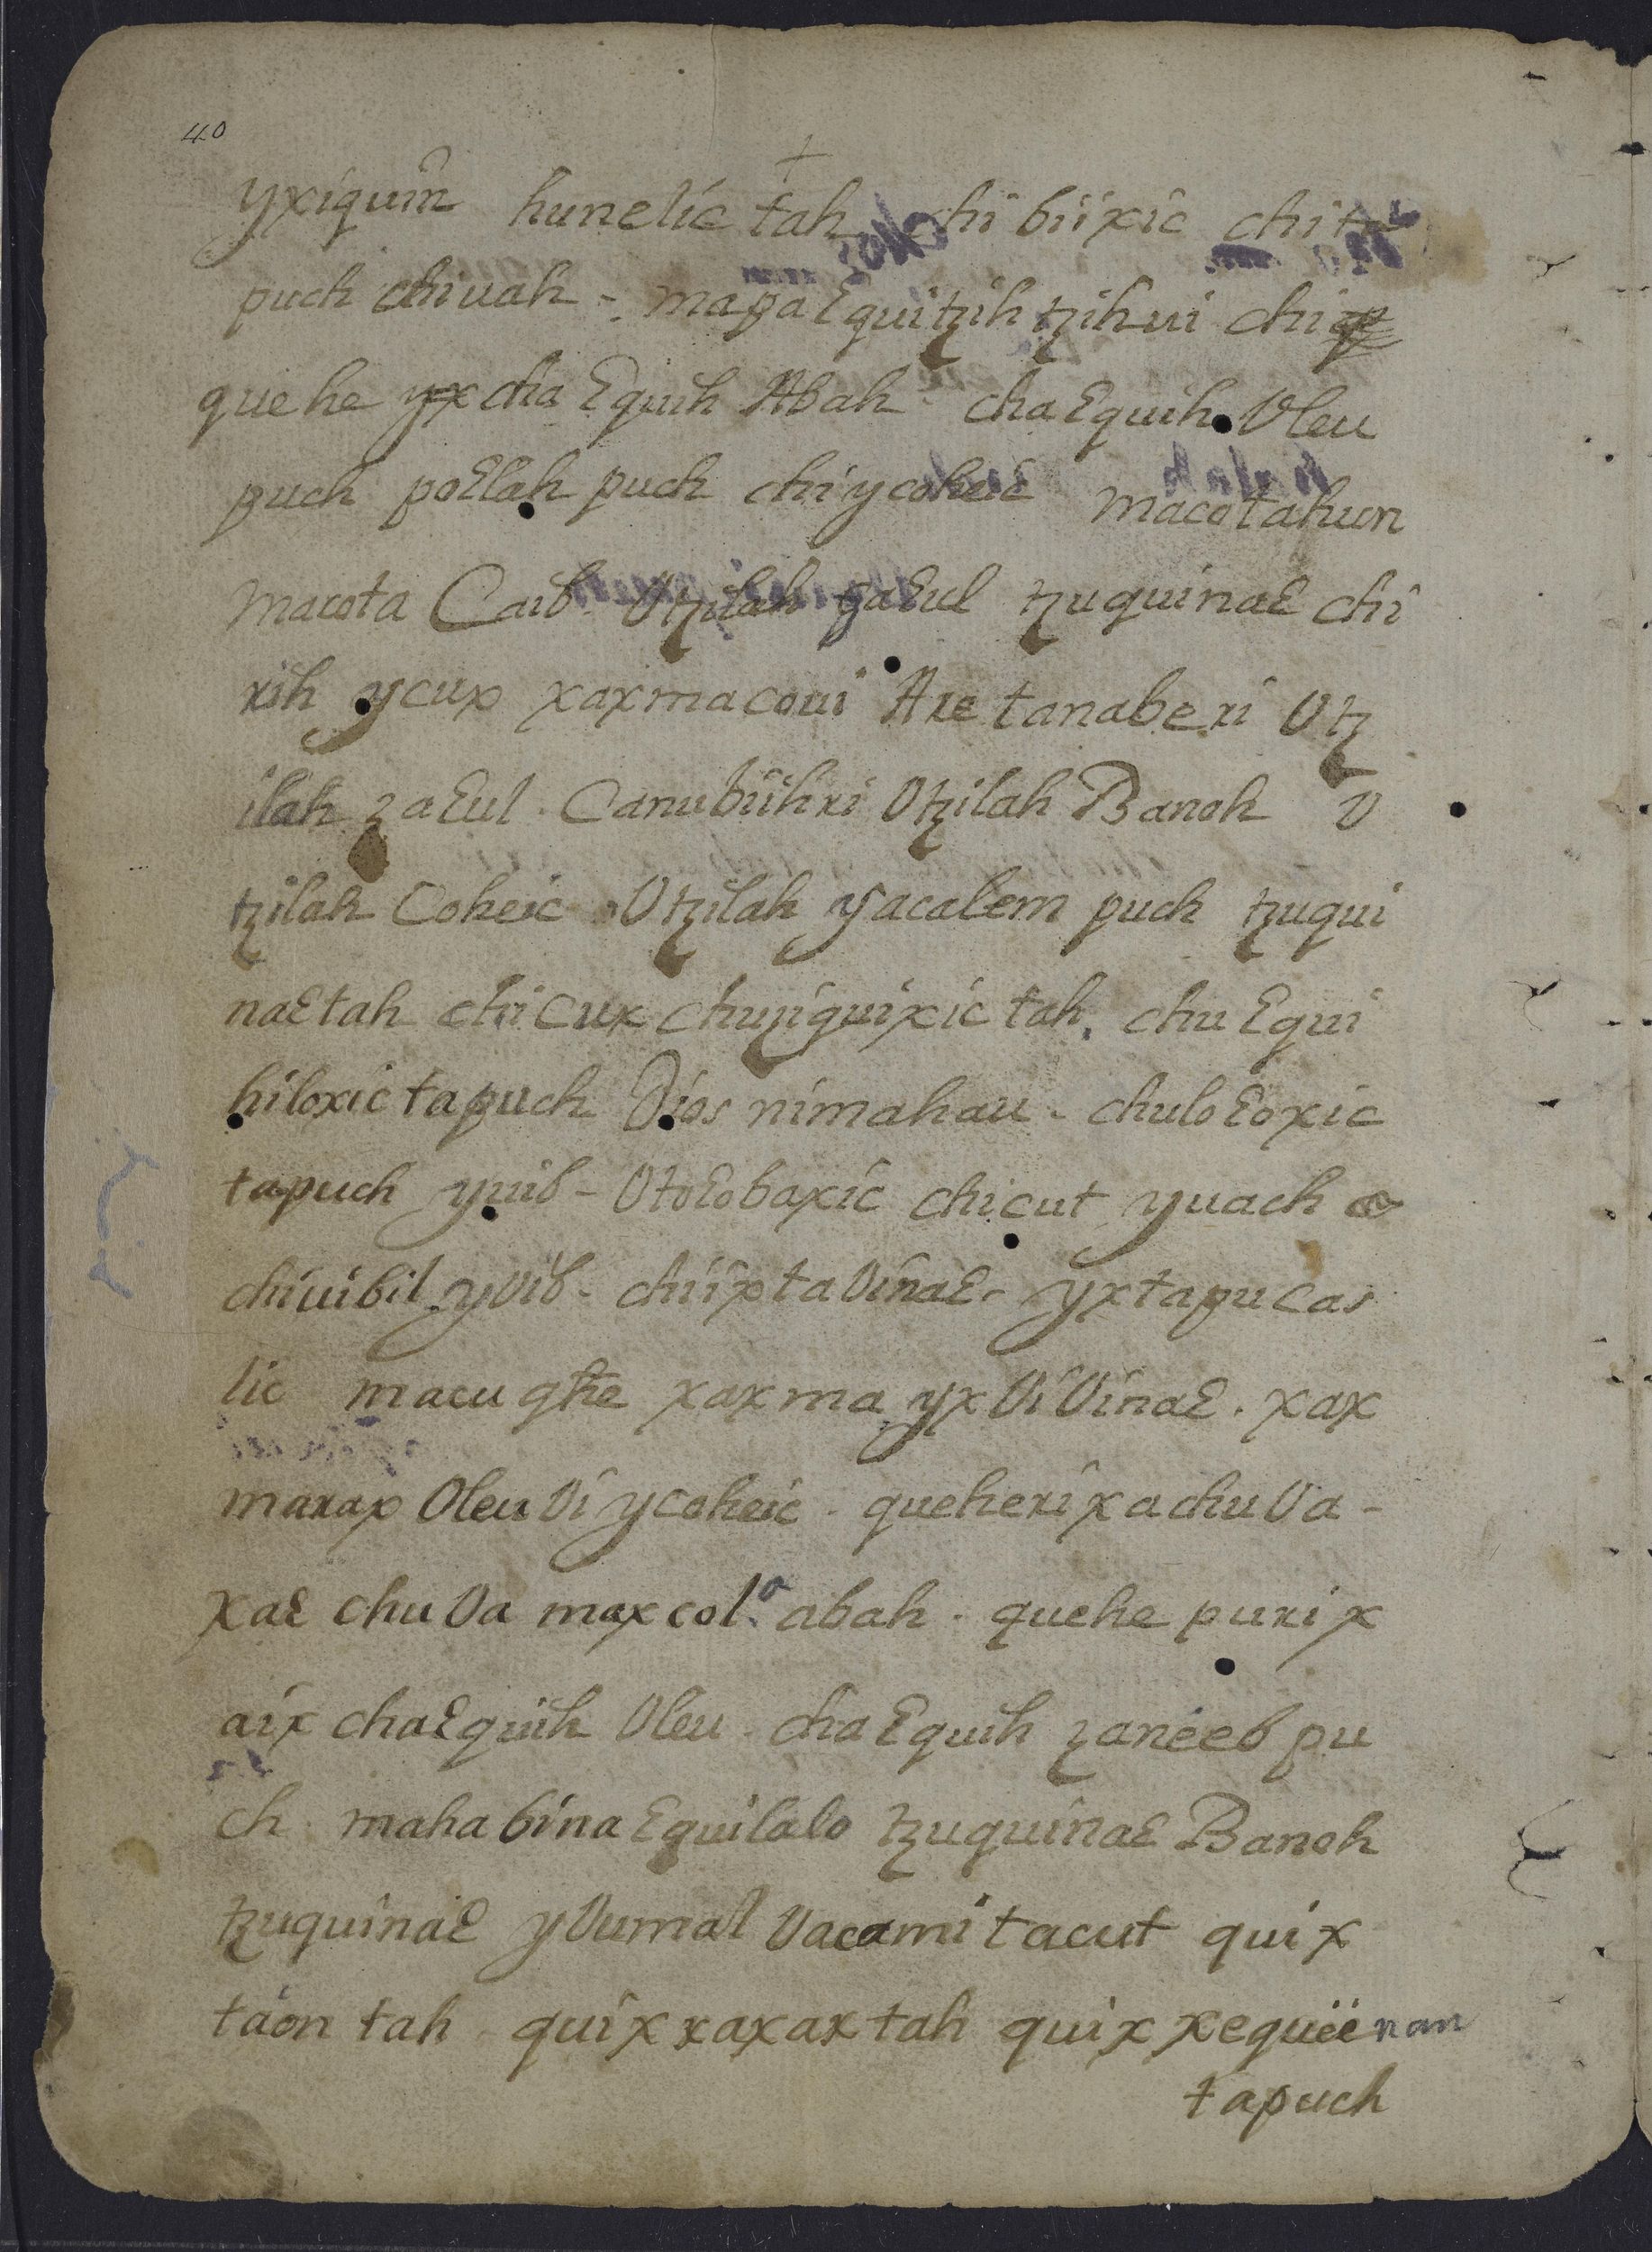 40
+
yxiquin hunelic tah chi biixic chitz
puch chivah - mapa Ɛquitzih tzih vi chi
quehe yx cha Ɛquih Abah cha Ɛquih Vleu
puch poƐlah puch chi ycoheic macotahun
macota Caib - Vtzilah zaƐul tzuquinaƐ chi
rih ycux xaxmacovi Are tanaberi Vtz
ilah zaƐul. Canubiihri Vtzilah Banoh V
tzilah Coheic Vtzilah yacalem puch tzuqui
naƐtah chi Cux chuziquixic tah. chu Ɛqui
hiloxic tapuch Dios nimahau - chuloƐoxic
tapuch yvib - VtoƐobaxic chicut yvach
chivibil yvib - chiixtaVinaƐ - yxtapu Cas
lic macu qhe xaxma yx Vi VinaƐ. xax
marax Vleu Vi ycoheic - queheri xa chu Va -
xaƐ chu Va max col.o abah - quehe puri x
aix chaƐquih Vleu - cha Ɛquih zaneeb pu
ch. maha bina Ɛquilalo tzuquinaƐ Banoh
tzuquinaƐ yVumal Vacamitacut quix
taon tah quix xaxax tah quix xequëënan
tapuch